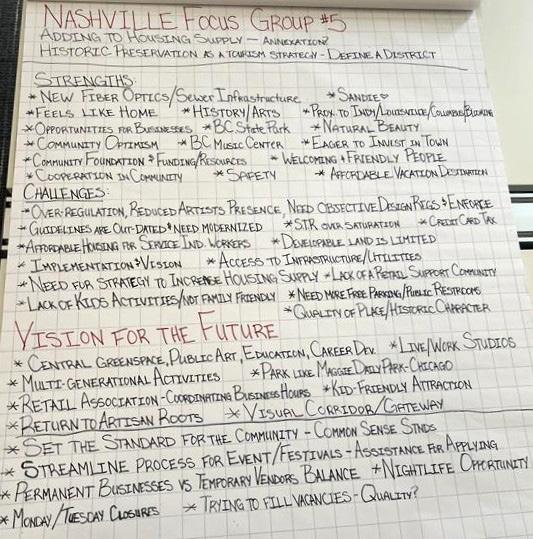 NASHVILLE FOCUS GROUP #5
ADDING TO HOUSING SUPPLY - ANNEXATION?
HISTORIC PRESERVATION AS A TOURISM STRATEGY - DEFINE A DISTRICT
STRENGTHS:
* NEW FIBER OPTICS/SEWER INFRASTRUCTURE * SANDIE♡
* FEELS LIKE HOME * HISTORY/ARTS * PROX. TO INDY/LOUISVILLE/COLUMBUS/BLOOMING
* OPPORTUNITIES FOR BUSINESSES * BC STATE PARK * NATURAL BEAUTY
* COMMUNITY OPTIMISM * BC MUSIC CENTER * EAGER TO INVEST IN TOWN
* COMMUNITY FOUNDATION & FUNDING/RESOURCES * WELCOMING + FRIENDLY PEOPLE
* COOPERATION IN COMMUNITY * SAFETY * AFFORDABLE VACATION DESTINATION
CHALLENGES:
* OVER-REGULATION, REDUCED ARTISTS PRESENCE, NEED OBJECTIVE DESIGN REGS & ENFORCE
* GUIDELINES ARE OUT-DATED & NEED MODERNIZED * STR OVER SATURATION * CREDIT CARD TAX
* AFFORDABLE HOUSING FOR SERVICE IND. WORKERS * DEVELOPABLE LAND IS LIMITED
* IMPLEMENTATION & VISION * ACCESS TO INFRASTRUCTURE/UTILITIES
* NEED FOR STRATEGY TO INCREASE HOUSING SUPPLY * LACK OF A RETAIL SUPPORT COMMUNITY
* LACK OF KIDS ACTIVITIES/NOT FAMILY FRIENDLY * NEED MORE FREE PARKING/PUBLIC RESTROOMS
* QUALITY OF PLACE/HISTORIC CHARACTER
VISION FOR THE FUTURE
* CENTRAL GREENSPACE, PUBLIC ART, EDUCATION, CAREER DEV. * LIVE/WORK STUDIOS
* MULTI-GENERATIONAL ACTIVITIES * PARK LIKE MAGGIE DALY PARK-CHICAGO
* RETAIL ASSOCIATION - COORDINATING BUSINESS HOURS * KID-FRIENDLY ATTRACTION
* RETURN TO ARTISAN ROOTS * VISUAL CORRIDOR/GATEWAY
* SET THE STANDARD FOR THE COMMUNITY - COMMON SENSE STNDS
* STREAMLINE PROCESS FOR EVENT/FESTIVALS - ASSISTANCE FOR APPLYING
* PERMANENT BUSINESSES VS TEMPORARY VENDORS BALANCE * NIGHTLIFE OPPORTUNITY
* MONDAY/TUESDAY CLOSURES * TRYING TO FILL VACANCIES - QUALITY?